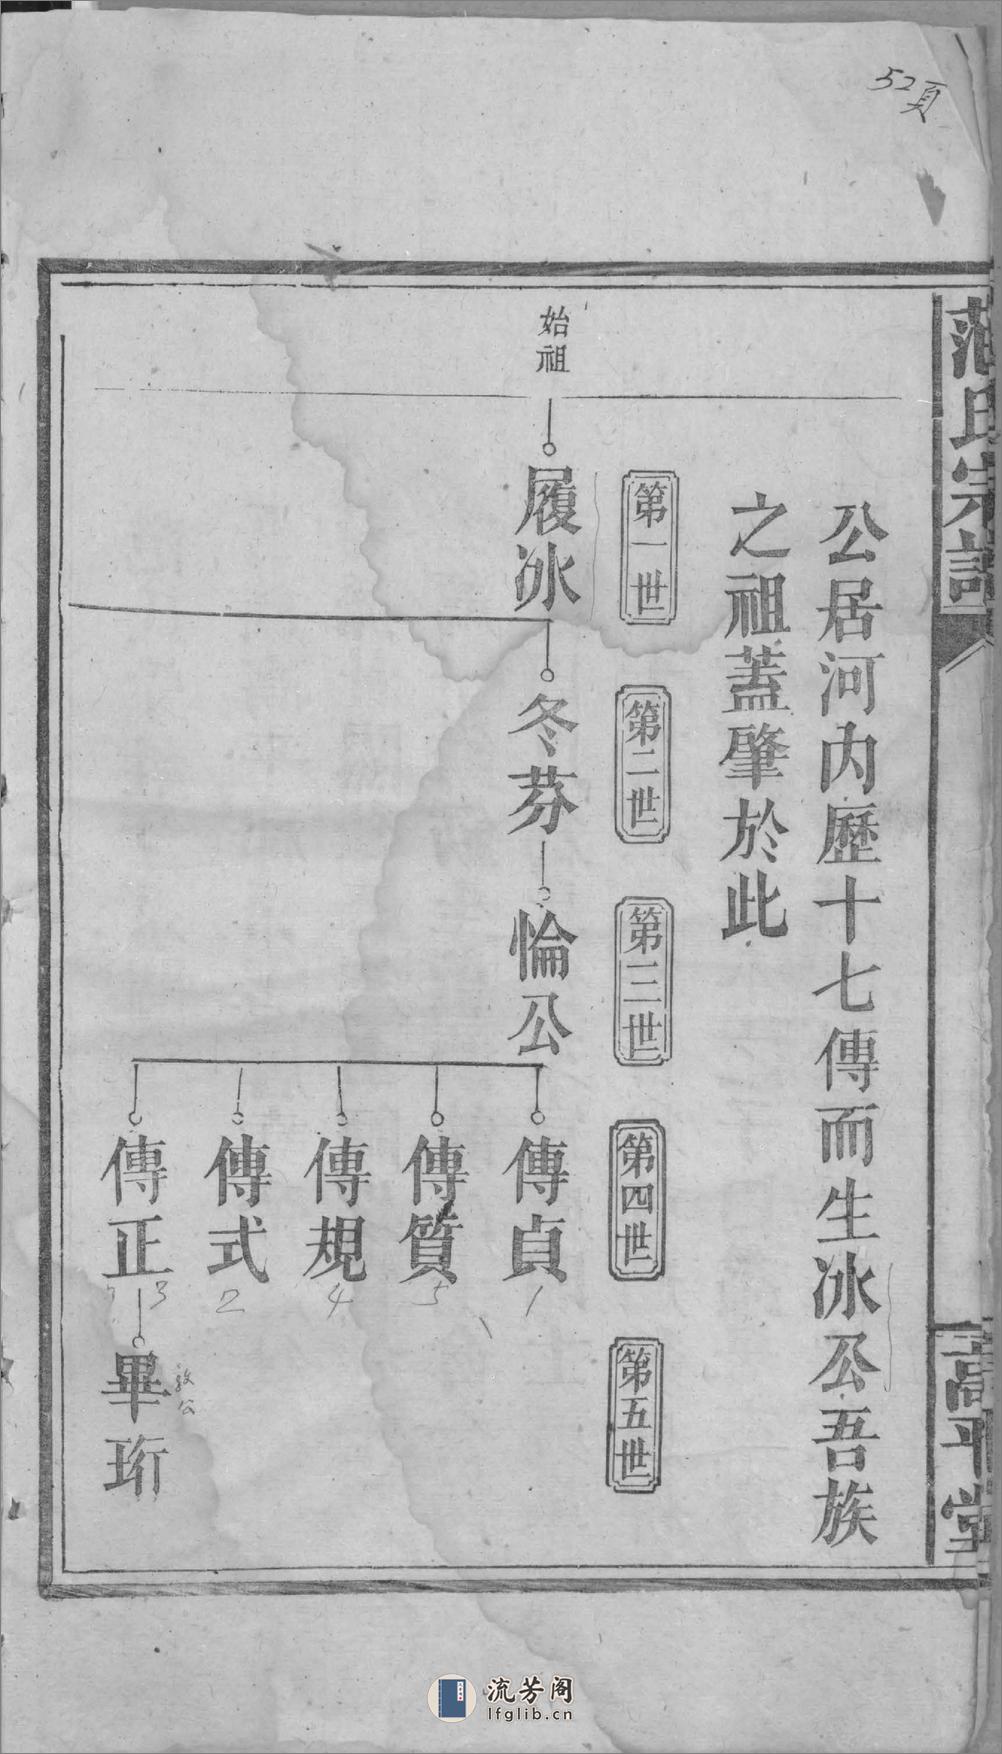 52頁
范氏宗譜
高平堂
公居河內歷十七傳而生冰公吾族
之祖蓋肇於此
第一世
第二世
第三世
第四世
第五世
始祖
履冰
冬芬
惀公
傳貞
1
傳質
5
傳規
4
傳式
2
傳正
3
畢珩
流芳阁
lfglib.cn